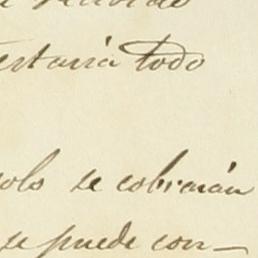 estaría todo
solo se cobrarán
se puede con-